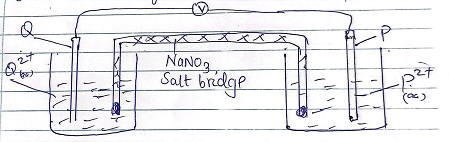 V
Q
P
Q²⁺
(aq)
NaNO₃
Salt bridge
P²⁺
(aq)